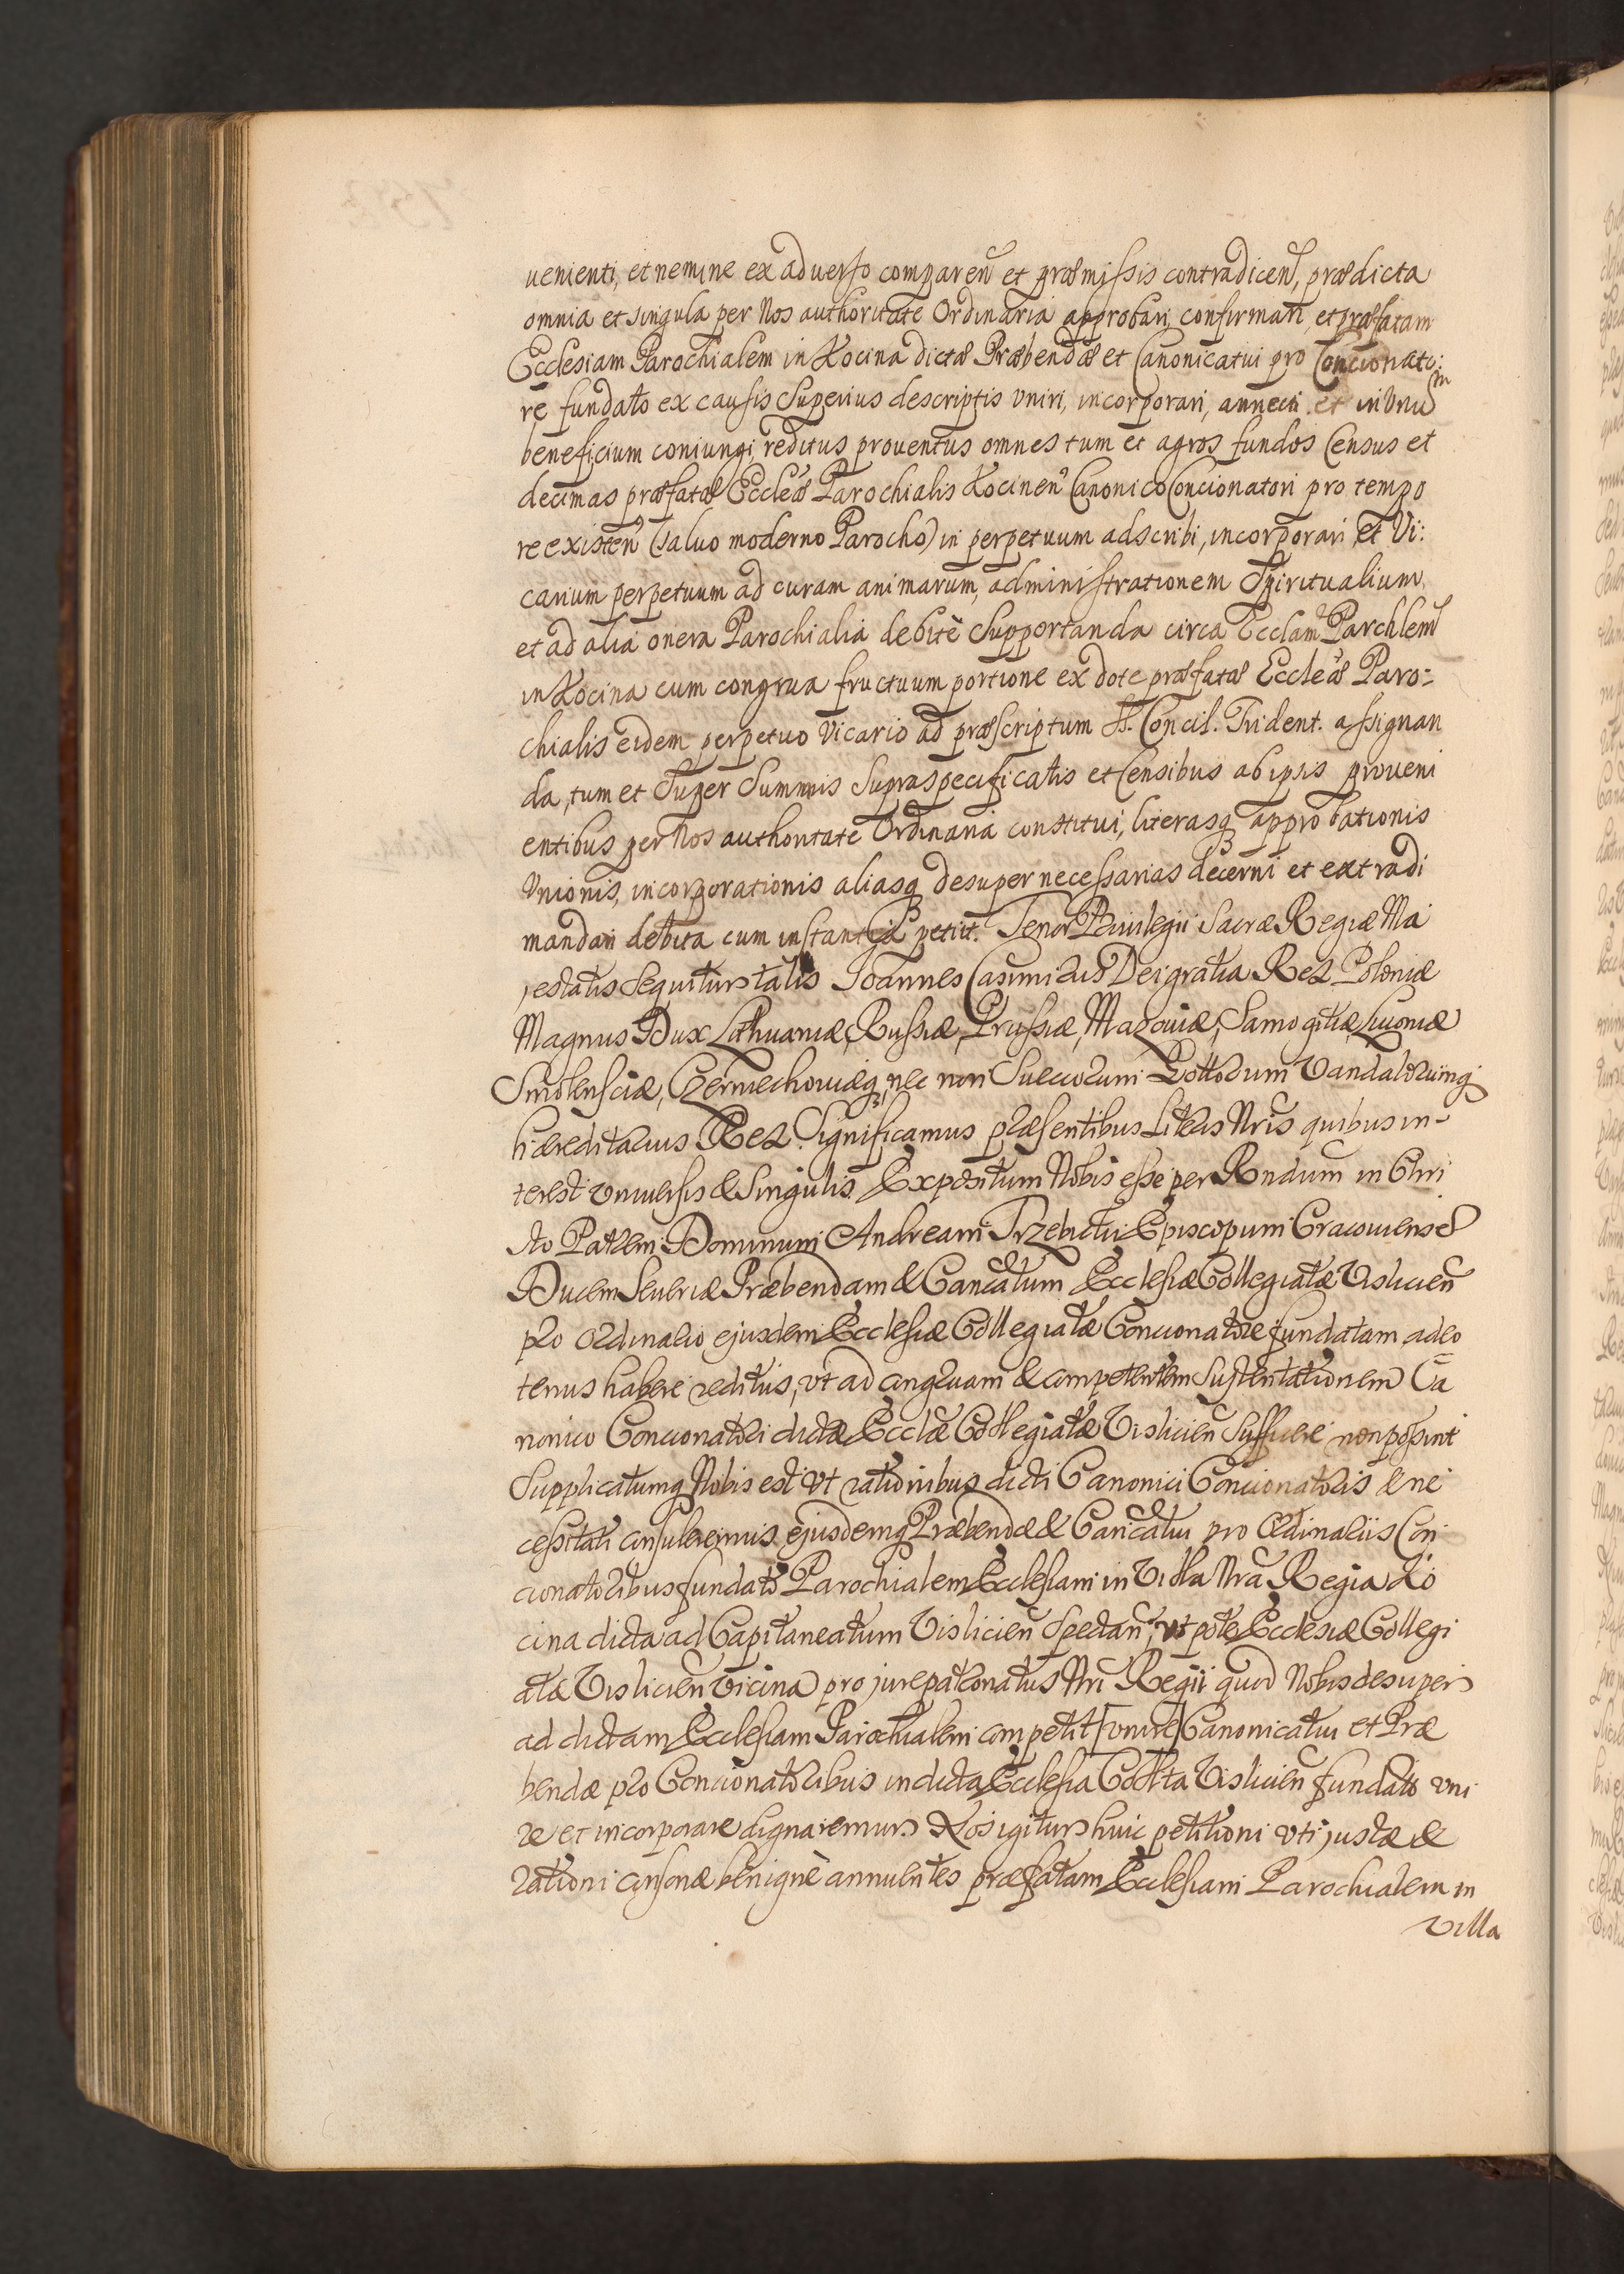 uenienti, et nemine ex aduerso comparen̄ et præmissis contradicen̄, prædicta
omnia et singula per Nos authoritate Ordinaria approbari, confirmari, et præfatam
Ecclesiam Parochialem in Kocina dictæ Præbendæ et Canonicatui pro Concionato:
re fundato ex causis Superius descriptis vniri, incorporari, annecti et in vnū
beneficium coniungi, reditus prouentus omnes tum et agros fundos Census et
decimas præfatæ Eccleæ Parochialis Kocinen̄ Canonico Concionatori pro tempo
re existen̄ (saluo moderno Parocho) in perpetuum adscribi, incorporari et Vi:
carium perpetuum ad curam animarum, administrationem Spiritualium,
et ad alia onera Parochialia debitè Supportanda circa Ecclam Parchlem
in Kocina cum congrua fructuum portione ex dote præfatæ Eccleæ Paro:
chialis eidem perpetuo Vicario ad præscriptum S. Concil. Trident. assignan
da, tum et Super Summis Supraspecificatis et Censibus ab ipsis proueni
entibus per Nos authoritate Ordinaria constitui, literasq approbationis
Vnionis, incorporationis aliasq desuper necessarias decerni et extradi
mandari debita cum instantia petiit. Tenor Priuilegii Sacræ Regiæ Ma
iestatis Sequitur talis Joannes Casimirus Dei gratia Rex Poloniæ
Magnus Dux Lithuaniæ, Russiæ, Prussiæ, Mazouiæ, Samogitiæ, Liuoniæ
Smolensciæ, Czerniechouiæq, nec non Suecorum Gottorum Vandalorumq
hæreditarius Rex. Significamus præsentibus Literis Nrīs quibus in-
terest vniuersis & Singulis. Expositum Nobis esse per Rndum in Chri
sto Patrem Dominum Andream Trzebicki Episcopum Cracouiense
Ducem Seueriæ Præbendam & Cancatum Ecclesiæ Collegiatæ Vislicien̄
pro ordinario ejusdem Ecclesiæ Collegiatæ Concionatore fundatam adeo
tenus habere reditus, vt ad congruam & competentem Sustentationem Ca
nonico Concionatori dictæ Ecclæ Collegiatæ Vislicien̄ Sufficere non possint
Supplicatumq Nobis est vt rationibus dicti Canonici Concionatoris & ne
cessitati consuleremus ejusdemq Præbendæ & Cancatui pro Ordinariis Con
cionatoribus fundato Parochialem Ecclesiam in Villa Nrā Regia Ko
cina dicta ad Capitaneatum Vislicien̄ Spectan̄, vt pote Ecclesiæ Collegi
atæ Vislicien̄ Vicina pro jure patronatus Nrī Regii quod Nobis desuper
ad dictam Ecclesiam Parochialem competit [vnire] Canonicatui et Præ
bendæ pro Concionatoribus in dicta Ecclesia Collta Vislicien̄ fundato vni
re et incorporare dignaremur. Nos igitur huic petitioni vti justæ &
rationi consonæ benignè annuentes præfatam Ecclesiam Parochialem in
Villa